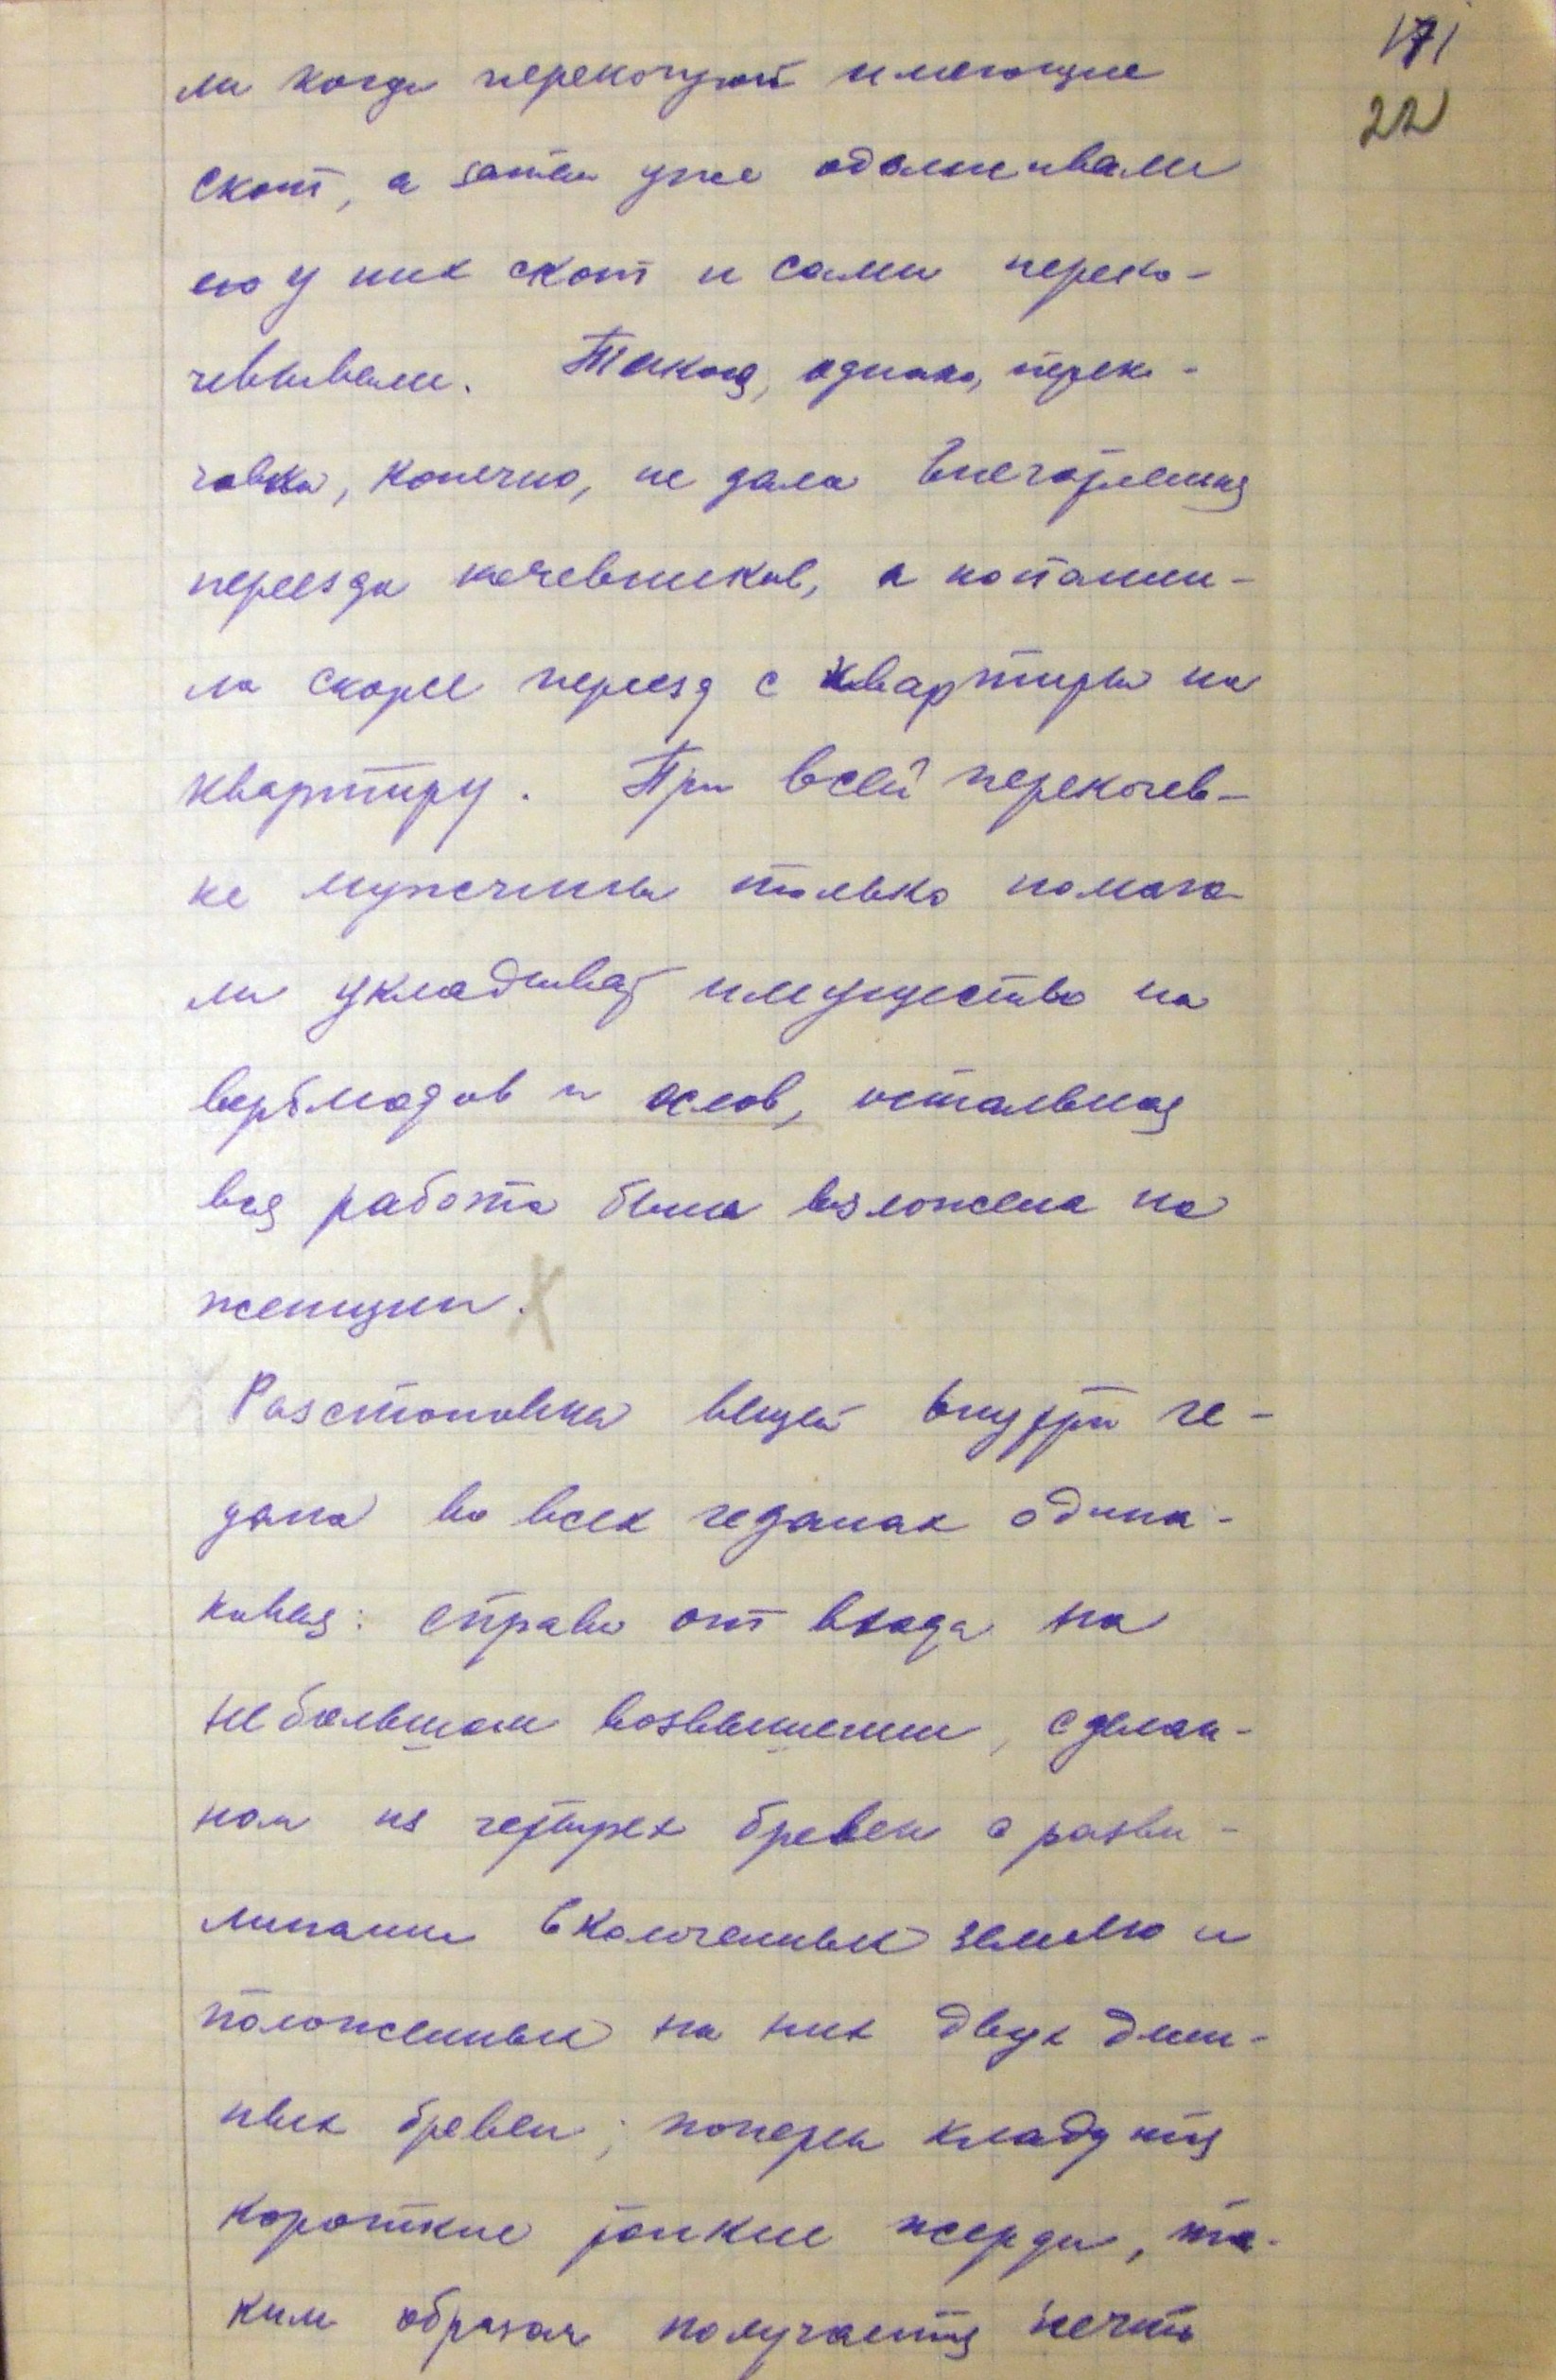 171
22
ли когда перекочуют имеющие
скот, а затем уже одалживали
его у них скот и сами переко-
чевывали. Такая, однако, переко-
човка, конечно, не дала впечатления
переезда кочевников, а напомни-
ла скорее переезд с квартиры на
квартиру. При всей перекочев-
ке мужчины только помога-
ли укладывать имущество на
верблюдов и ослов, остальная
вся работа была возложена на
женщин.
Расстановка вещей внутри ге-
дана во всех геданах одина-
ковая: справа от входа на
небольшом возвышении, сделан-
ном из четырех бревен с разви-
линами вколоченных землю и
положенных на них двух длин-
ных бревен; поперек кладутся
короткие тонкие жерди, та-
ким образом получается нечто